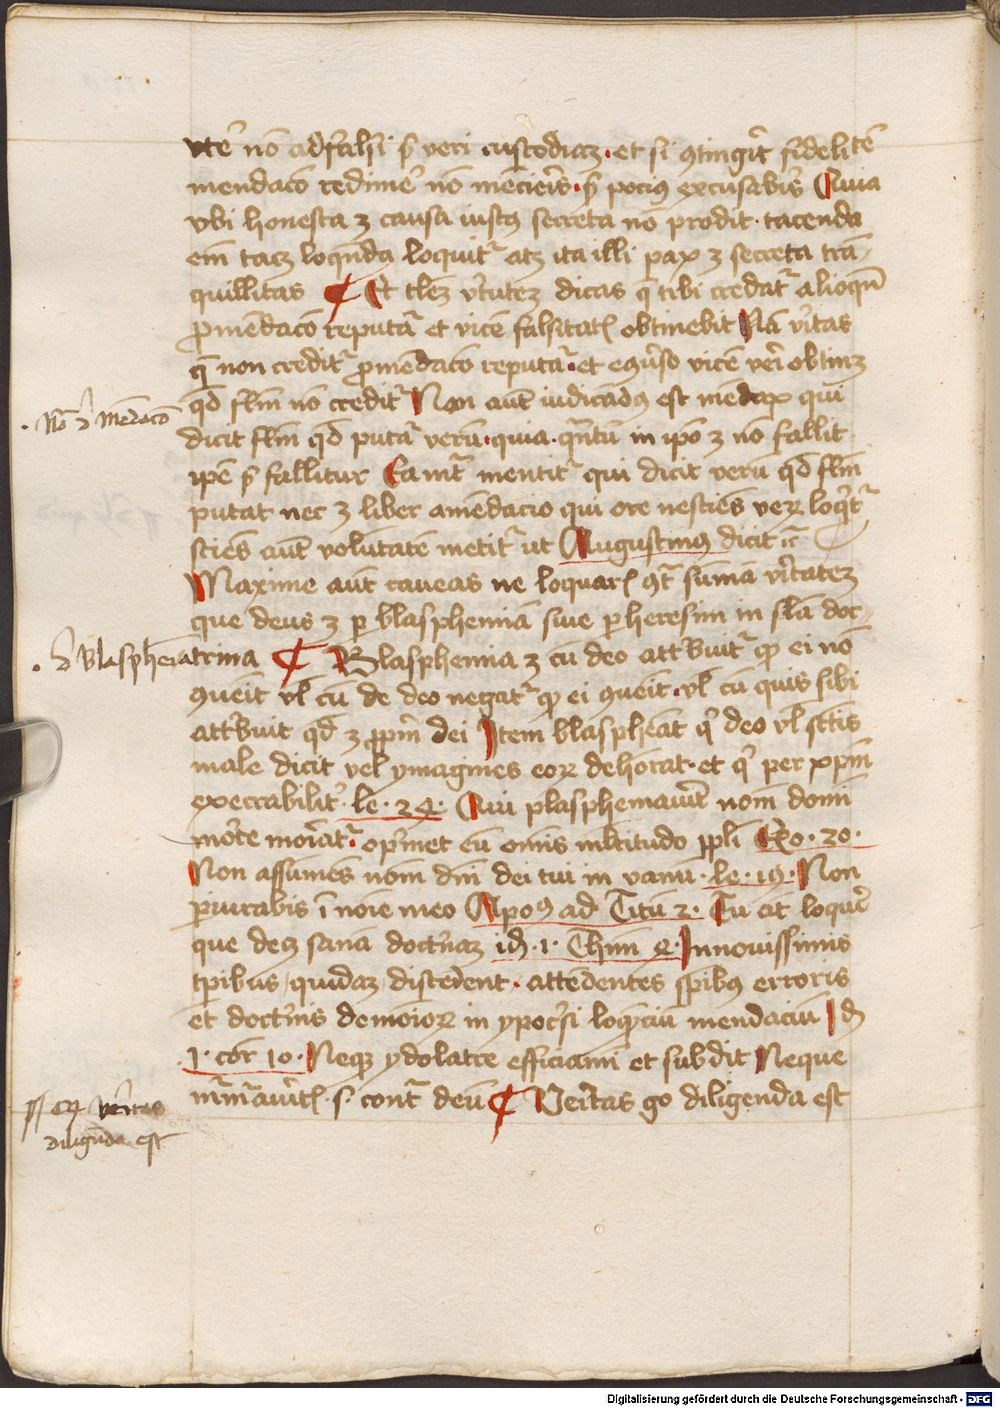 vtē nō ad falsi sʒ veri custodiaʒ · et si ꝯtingit᷑ fidelitē
mendacō redimē nō mēcieris · sʒ pociꝰ excusabis Quia
vbi honesta ʒ causa iustꝰ secreta nō prodit · tacenda
em̄ tacʒ loquēda loquit᷑ atqʒ ita illi pax ʒ secreta trā-
quillitas ¶ Et tlēʒ v̓itateʒ dicas q̄ tibi credat᷑ alioqn̄
ꝓ mēdacō reputat᷑ et vicē falsitatꝭ obtinebit Nā v̓itas
q̄ non credit᷑ ꝓ mēdacō reputat᷑ · et eꝯuerso vicē veri obtinʒ
qd̄ flm̄ nō credit᷑ Non aūt iudicādꝰ est mēdax qui
dicit flm̄ qd̄ putat verū · quia · qn̄tū in ipō ʒ nō fallit ·
ipē sʒ fallitur Eamt᷑ mentit᷑ qui dicit verū qd̄ flm̄
putat nec ʒ liber a mēdacio qui ore nesciēs veꝝ loqt᷑
sciēs aūt volūtatē metit᷑ ut Augustinꝰ dicit
Maxime aūt caueas ne loquarꝭ ꝯt᷑ sūmā v̓itateʒ
que deus ʒ ꝑ blasphemiā siue ꝑ heresim in sc̄a doc-
trina ¶ Blasphemia ʒ cū deo attribuit᷑ qꝫ ei nō
ꝯueit vl̄ cū de deo negat᷑ qꝫ ei ꝯueit · vl̄ cū quis sibi
attribuit qd̄ ʒ ꝓpriū dei Item blasphēat qͥ deo vl̄ sctīs
male dicit vel ymagines eoꝝ dehorāt · et qͥ per xpm̄
execrabilit᷑ · le · 24 · Qui plasphemauerit nomē domī
morte moriat᷑ · opͥmet eū omīs m̄ltitudo ppl̄i Exo · 20 ·
Non assumes nomē dn̄i dei tui in vanū · le · 19 · Non
ꝑiurabis ī noīe meo Aposꝰ ad Titū 2 · Tu aūt loqueͬ
que decʒ sanā doctrinaʒ id̄ · 1 · Thim 4 In nouissimis
tpribus quidaʒ discedent · attēdentes spiritibꝰ erroris
et doctrinis demoīoꝝ in ypocrisi loqꝫciū mendaciū Id̄
· 1 · cor 10 · Neqʒ ydolatre efficiamī et subdit Neque
murmurauerit᷑ · s · cont᷑ deū ¶ Veritas g̊o diligenda est
· Nō de Mēdaciō
· de blasphēia
ſſ eꝝ veritas
diligēda est
Digitalisierung gefördert durch die Deutsche Forschungsgemeinschaft - DFG